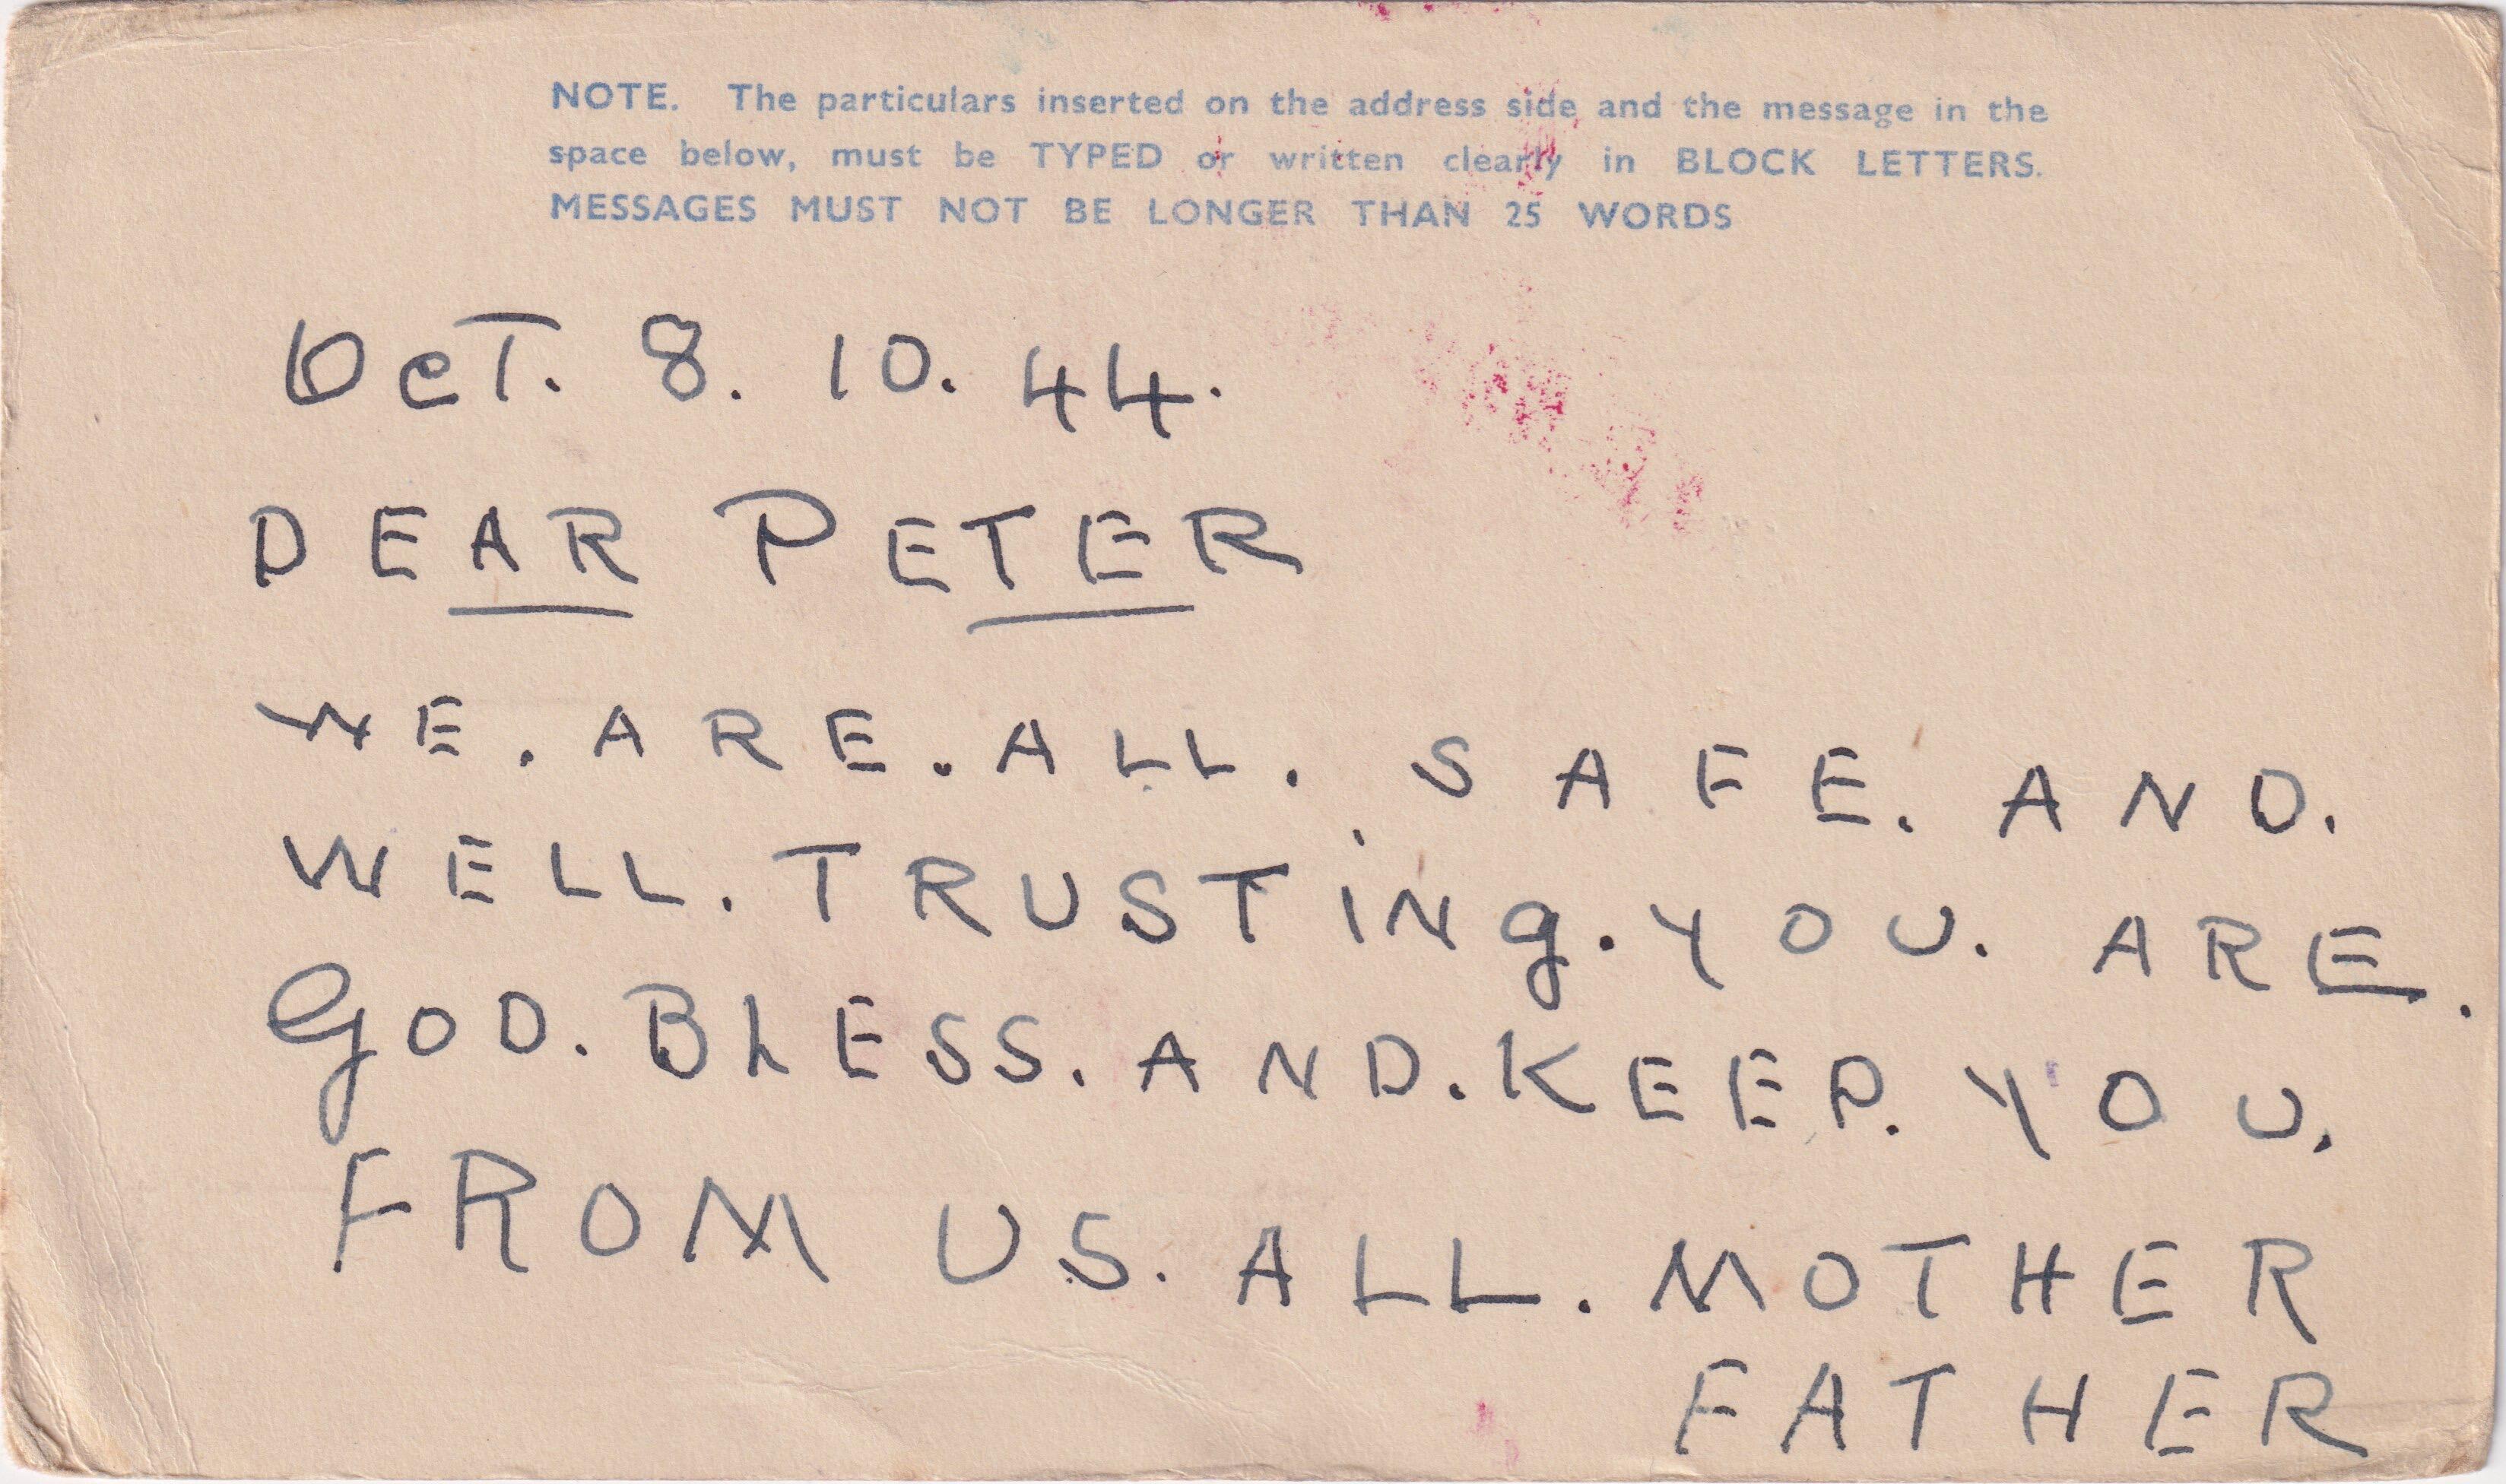 NOTE. The particulars inserted on the address side and the message in the
space below, must be TYPED or written clearly in BLOCK LETTERS.
MESSAGES MUST NOT BE LONGER THAN 25 WORDS
OcT. 8. 10. 44.
DEAR PETER
WE. ARE. ALL. SAFE. AND.
WELL. TRUSTiNg. YOU. ARE.
GOD. BLESS. AND. KEEP. YOU.
FROM US. ALL. MOTHER
FATHER